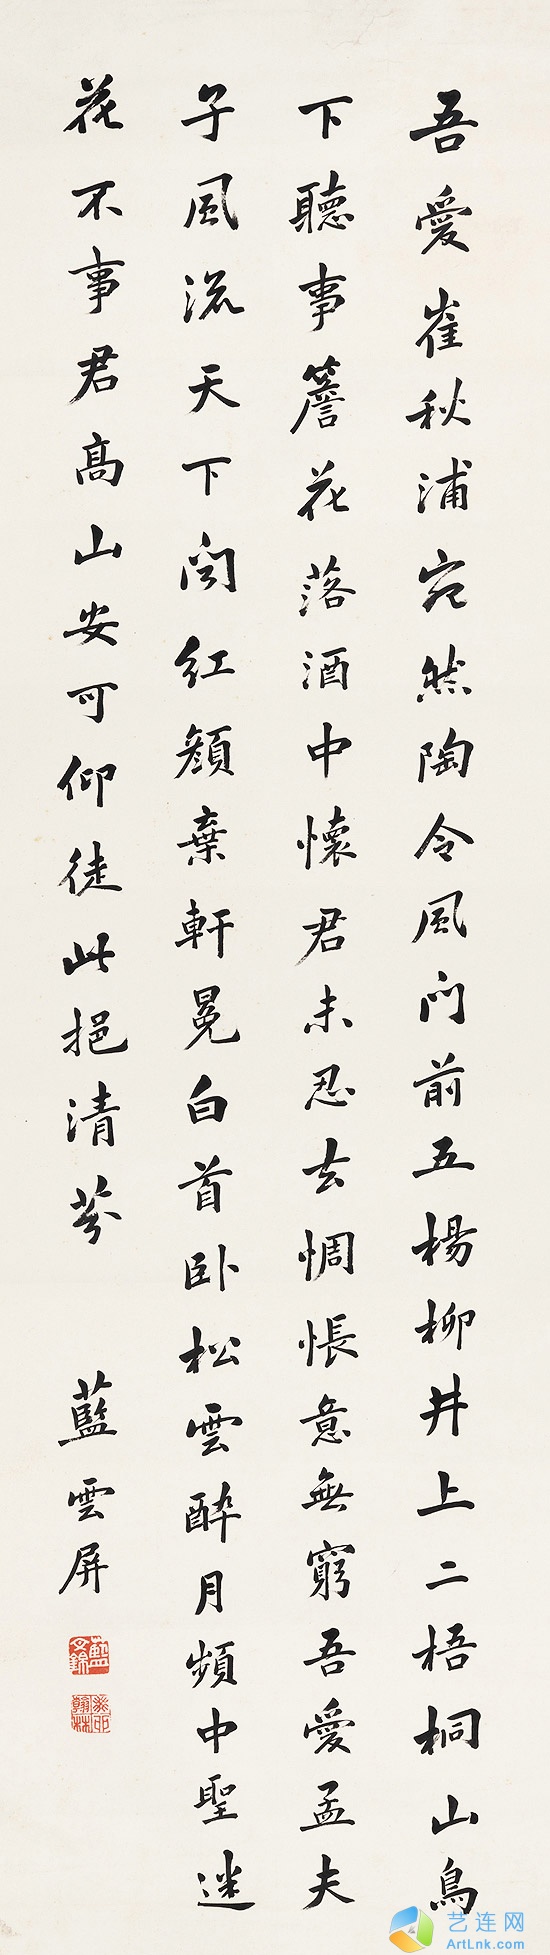 吾愛崔秋浦宛然陶令風門前五楊柳井上二梧桐山鳥
下聽事簷花落酒中懷君未忍去惆悵意無窮吾愛孟夫
子風流天下聞紅顔棄軒冕白首卧松雲醉月頻中聖迷
花不事君髙山安可仰徒此挹清芬
藍雲屏
藍文錦
癸卯翰林
艺连网
ArtLnk.com